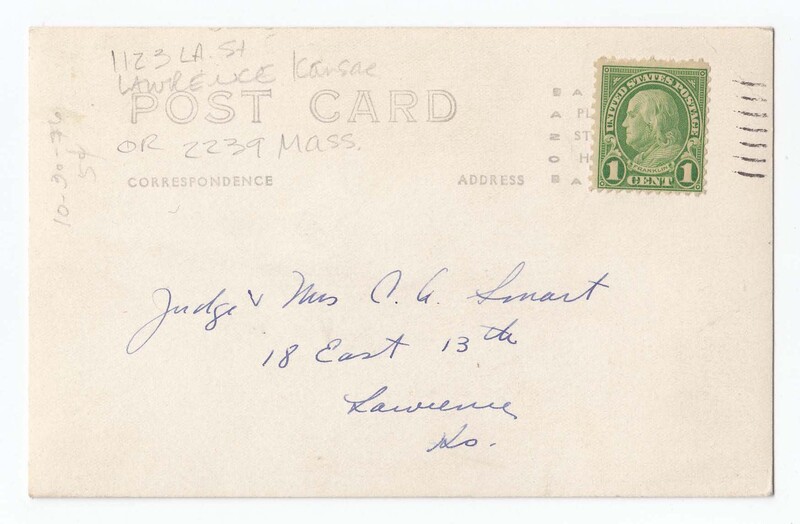 1123 LA. St
LAWRENCE Kansas
POST CARD
OR 2239 MASS.
CORRESPONDENCE
ADDRESS
10-30-76
5¢
UNITED STATES POSTAGE
FRANKLIN
1 CENT 1
Judge & Mrs C. A. Smart
18 East 13th
Lawrence
Ks.